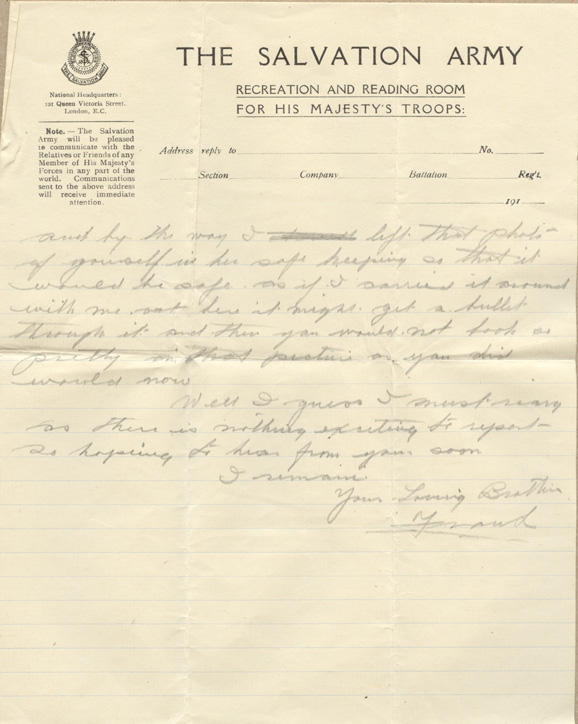 THE SALVATION ARMY
RECREATION AND READING ROOM
FOR HIS MAJESTY'S TROOPS:
National Headquarters:
101 Queen Victoria Street.
London, E.C.
Note. — The Salvation
Army will be pleased
to communicate with the
Relatives or Friends of any
Member of His Majesty's
Forces in any part of the
world. Communications
sent to the above address
will receive immediate
attention.
Address reply to No.
Section Company Battalion Reg't.
191
and by the way I left that photo
of yourself in her safe keeping so that it
would be safe. as if I carried it around
with me out here it might get a bullet
through it and then you would not look as
pretty in that picture as you did
would now
Well I guess I must ring
as there is nothing exciting to report
so hoping to hear from you soon
I remain
Your Loving Brother